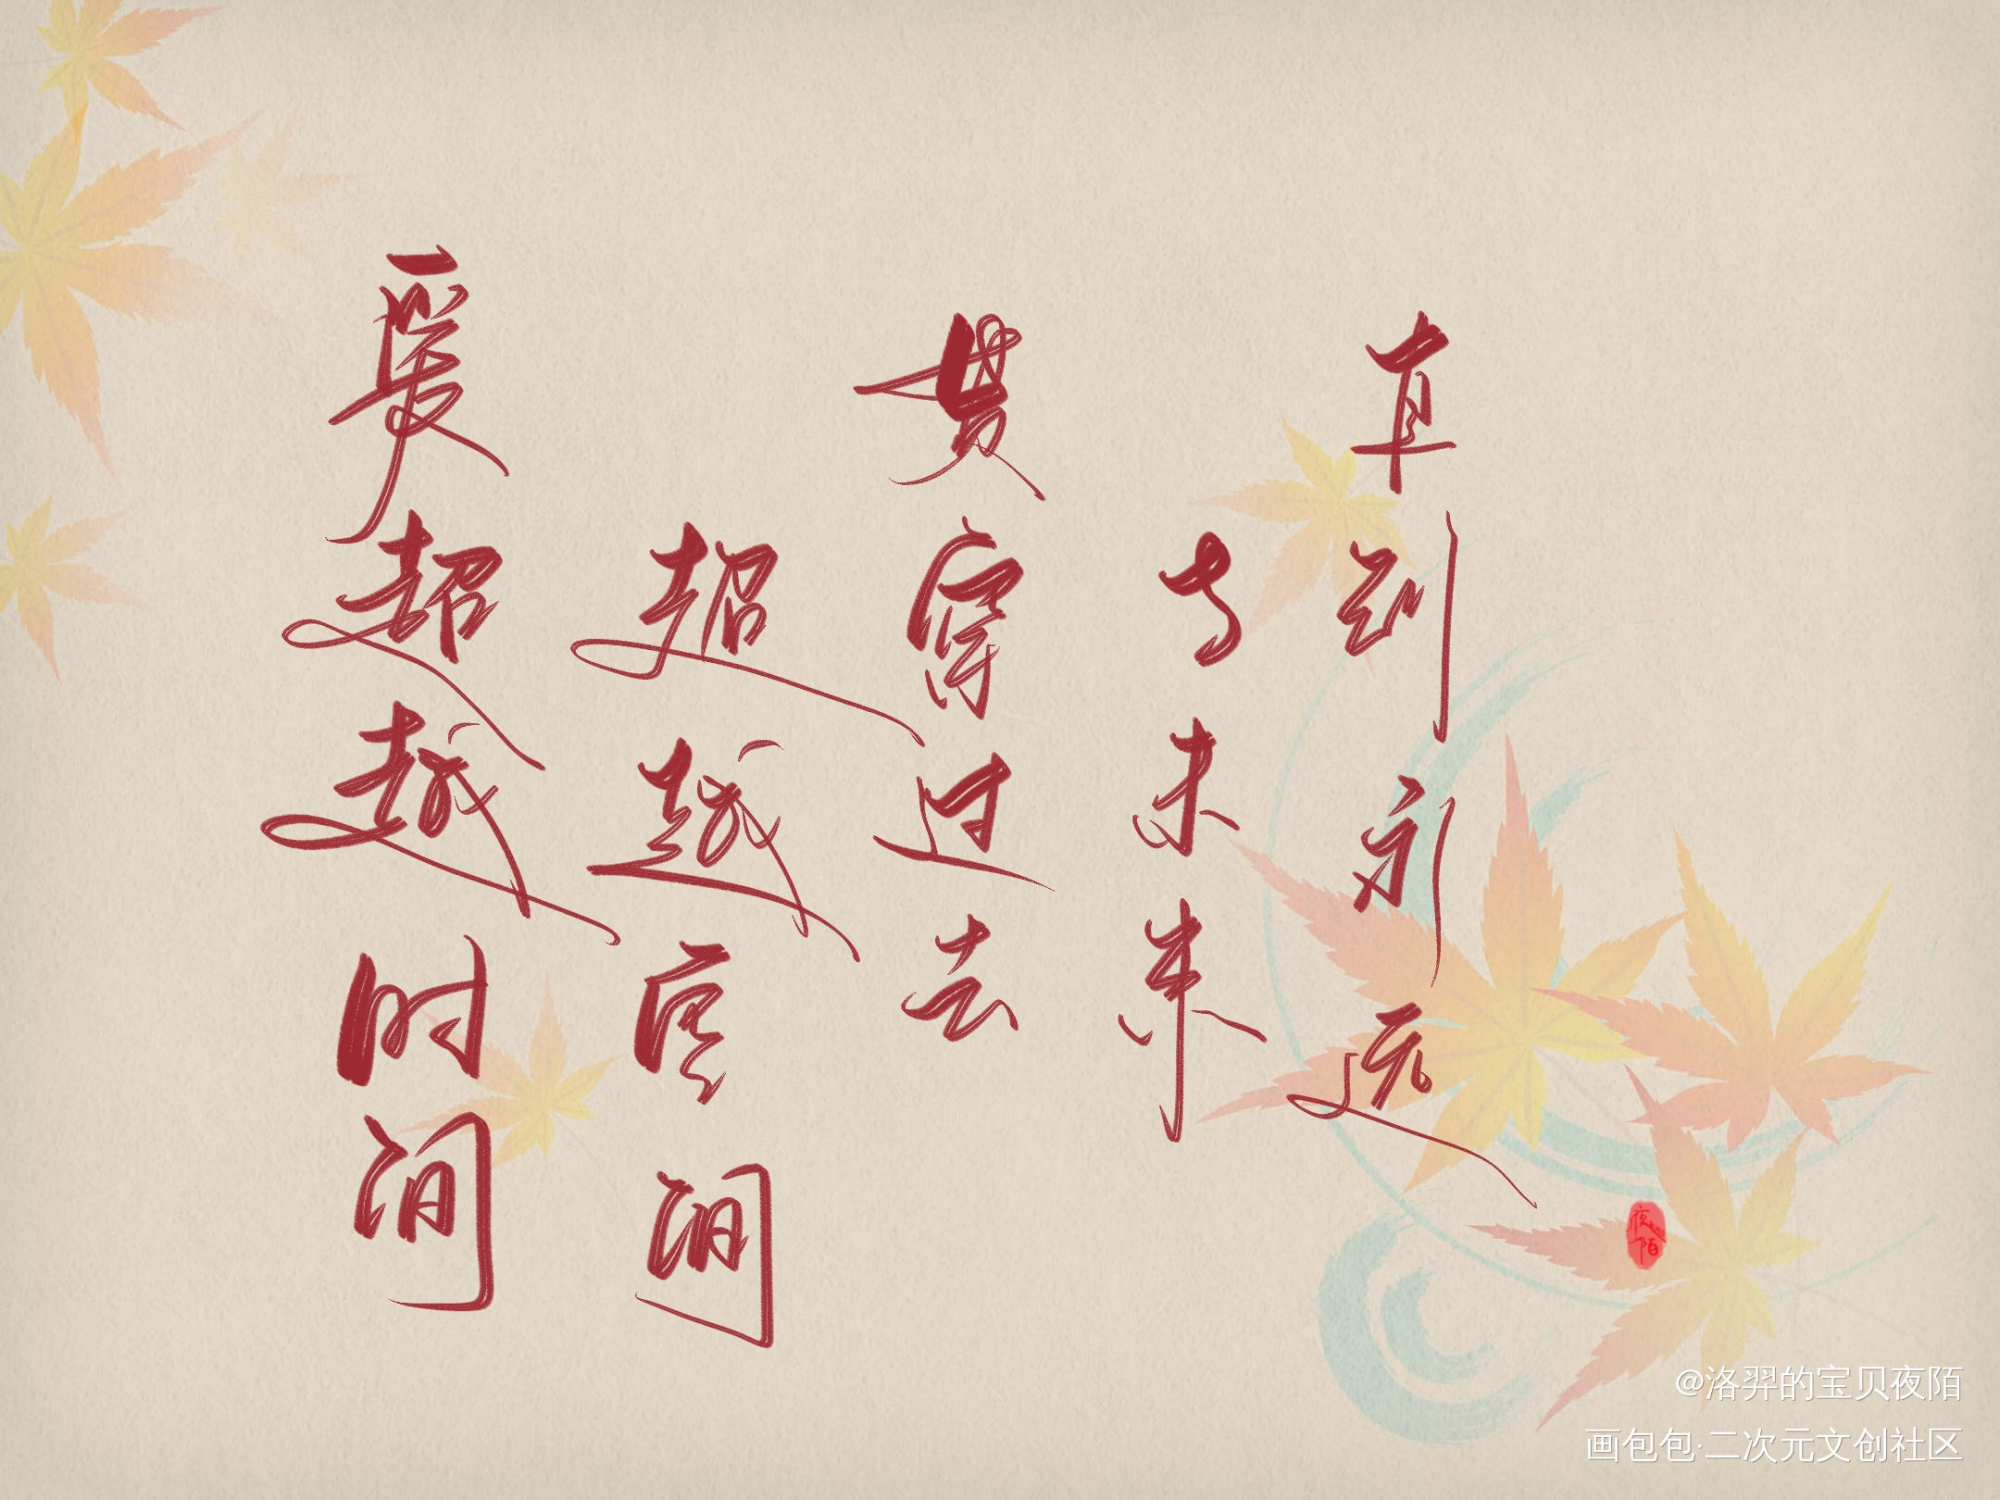 爱超越时间
超越空间
贯穿过去
与未来
直到永远
夜陌
@洛羿的宝贝夜陌
画包包·二次元文创社区